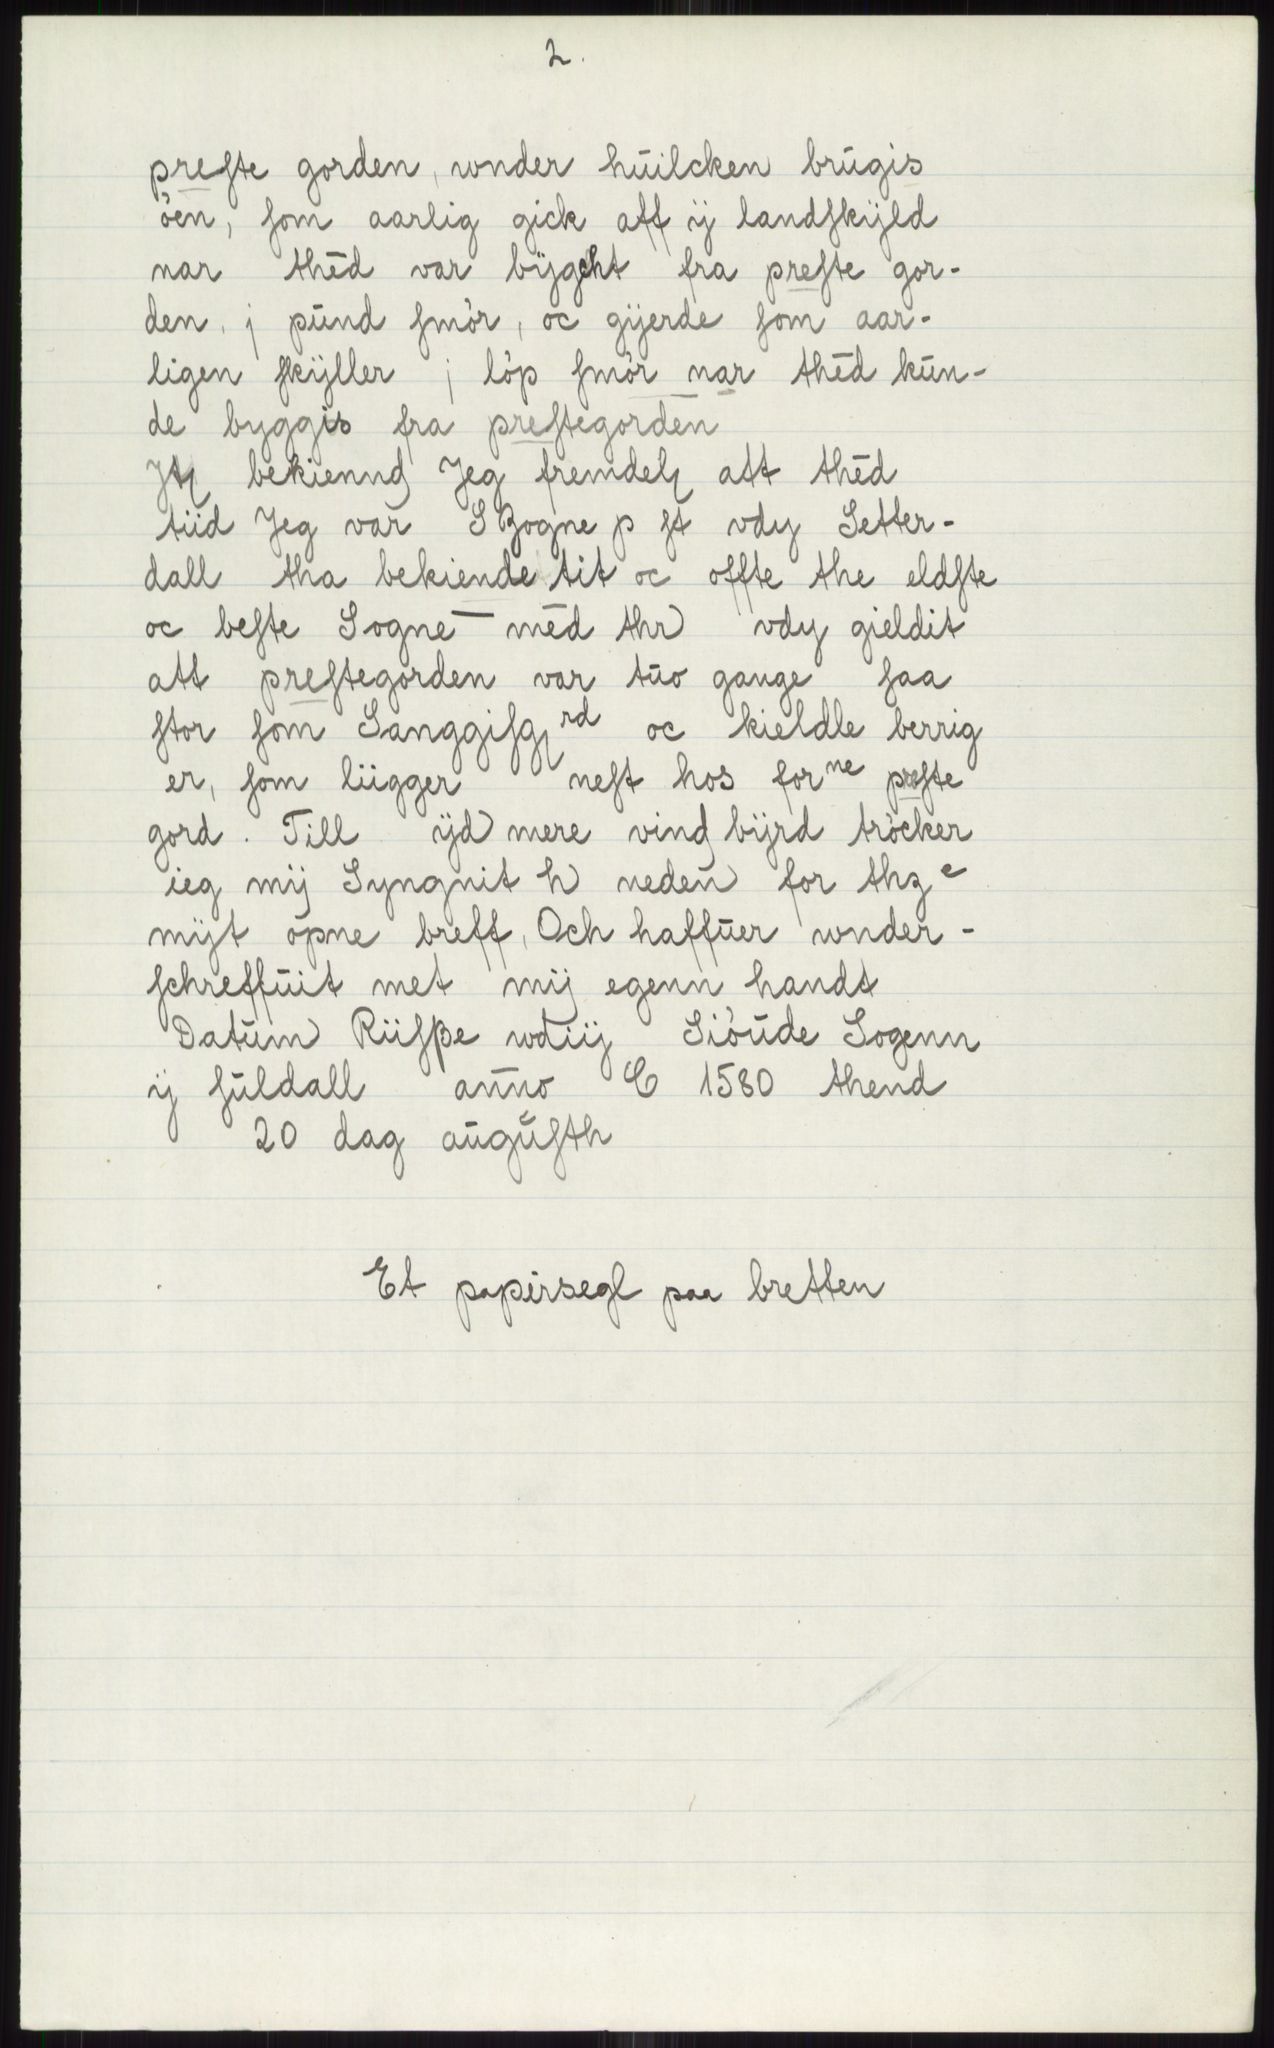 2.
prefte gorden, wnder huilcken brugis
öen, fom aarlig gick aff ij landfkyld
nar thed var bijgcht fra prefte gor-
den, j pund fmör, oc gijerde fom aar-
ligen fkijller j löp fmör nar thed kun-
de byggis fra preftegorden
bekiennd Jeg fremdelß att thed
tiid Jeg var S Zogne p ft vdy Setter-
dall tha bekiende tit oc offte the eldfte
oc befte Sogne med thr vdy gieldit
att preftegorden var tuo gange faa
ftor fom oc kieldle berrig
er, fom liigger neft hos forne prefte
gord. Till ijd mere vind bijrd tröcker
ieg mij Syngnit h neden for thz e
mijt opne breff, Och haffuer wnder-
fchreffuit met mij egenn handt
Datum Riifße wdiij Siöude Sogenn
ij fuldall anno C 1580 thend
20 dag augufth
Et papirsegl paa bretten